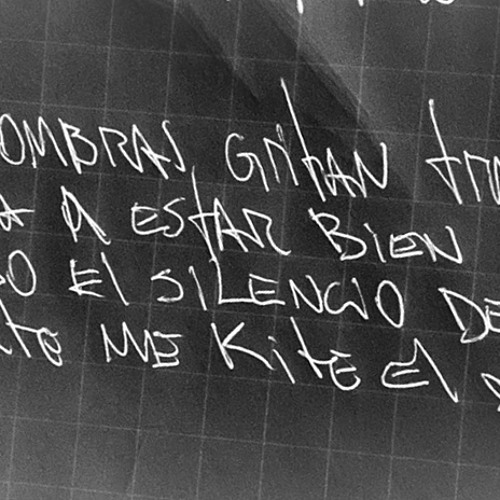 OMBRAS GRITAN TRA
A A ESTAR BIEN
O El SILENCIO DE
te ME KiTE El